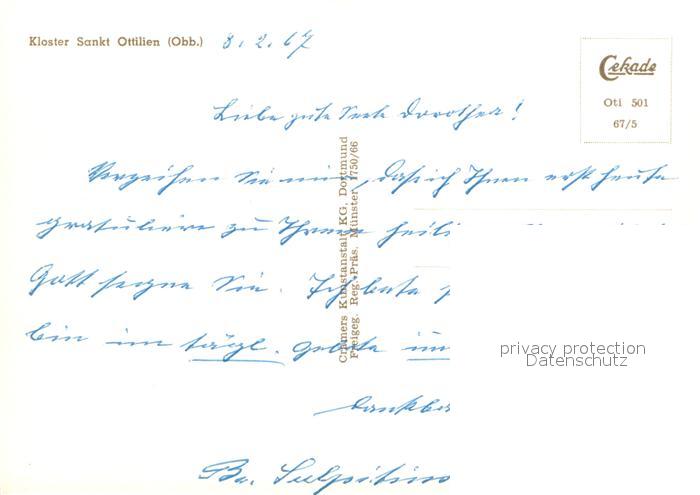 Kloster Sankt Ottilien (Obb.) 8.2.67
Cekade
Oti 501
67/5
Liebe gute Seele Dorothea!
Verzeihen Sie mir, daß ich Ihnen erst heute
gratuliere zu Ihrem heili
Gott segne Sie. Ich bete
bin im tägl. Gebete im
dankba
Br.
Cramers Kunstanstalt KG, Dortmund
Freigeg. Reg.-Präs. Münster 1750/66
privacy protection
Datenschutz